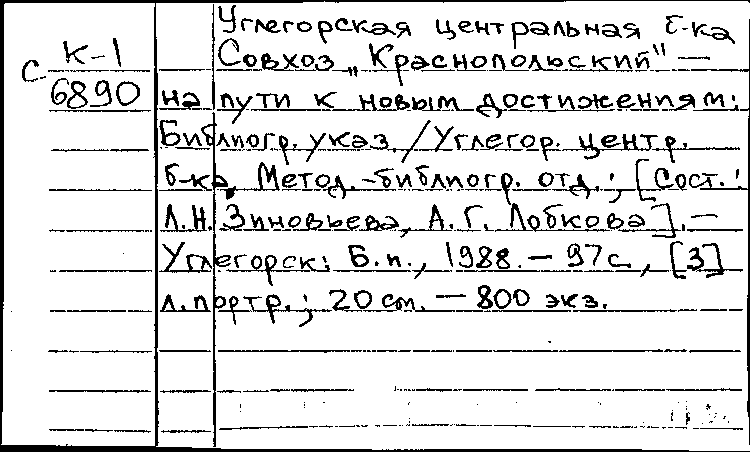 Углегорская центральная б-ка
С К-1 Совхоз „Краснопольский" —
6890 на пути к новым достижениям:
Библиогр. указ. / Углегор. центр.
б-ка, Метод.-библиогр. отд.; [Сост.:
Л.Н. Зиновьева, А.Г. Лобкова]. —
Углегорск: Б.и., 1988. — 97 с., [3]
л. портр.; 20 см. — 800 экз.